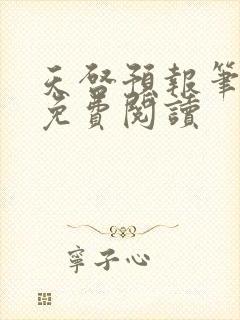 天啓預報筆
免費閱讀
寧子心